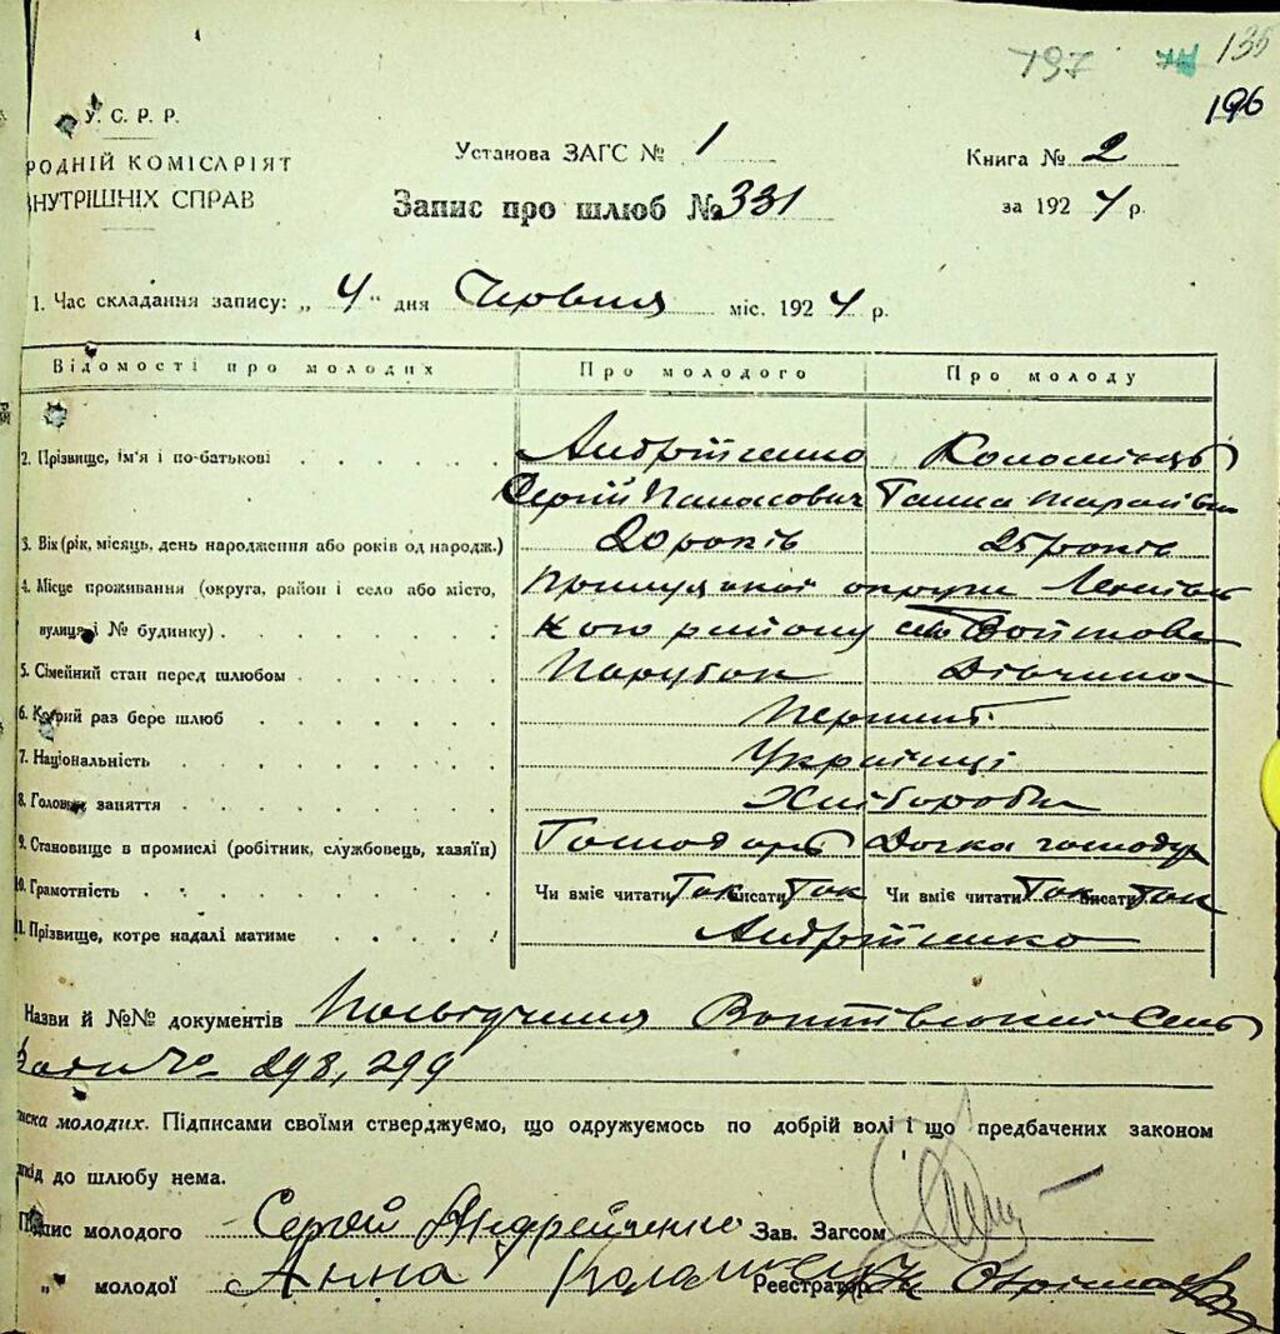 197 135
196
У. С. Р. Р.
РОДНІЙ КОМІСАРІЯТ
НУТРІШНІХ СПРАВ
Установа ЗАГС № 1
Книга № 2
Запис про шлюб № 331
за 1924 р.
1. Час складання запису: „4" дня Червня міс. 1924 р.
Відомості про молодих Про молодого Про молоду
2. Прізвище, ім'я і по-батькові Андрійченко Коломієць
Сергій Панасович Ганна
3. Вік (рік, місяць, день народження або років од народж.) 20 років 25 років
4. Місце проживання (округа, район і село або місто, Прилуцької округи
вулиця і № будинку) кого району село Войтове
5. Сімейний стан перед шлюбом Парубок Дівчина
6. Котрий раз бере шлюб Перший
7. Національність Українці
8. Головне заняття Хлібороби
9. Становище в промислі (робітник, службовець, хазяїн) Господарь Дочка господаря
10. Грамотність Чи вміє читати Так писати Так Чи вміє читати Так писати Так
11. Прізвище, котре надалі матиме Андрійченко
Назви й №№ документів Посвідчення Войтівської Сель
Ради № 298, 299
иска молодих. Підписами своїми стверджуємо, що одружуємось по добрій волі і що предбачених законом
шкід до шлюбу нема.
Підпис молодого Сергей Андрейченко Зав. Загсом
„ молодої Анна Коломиец Реєстратор